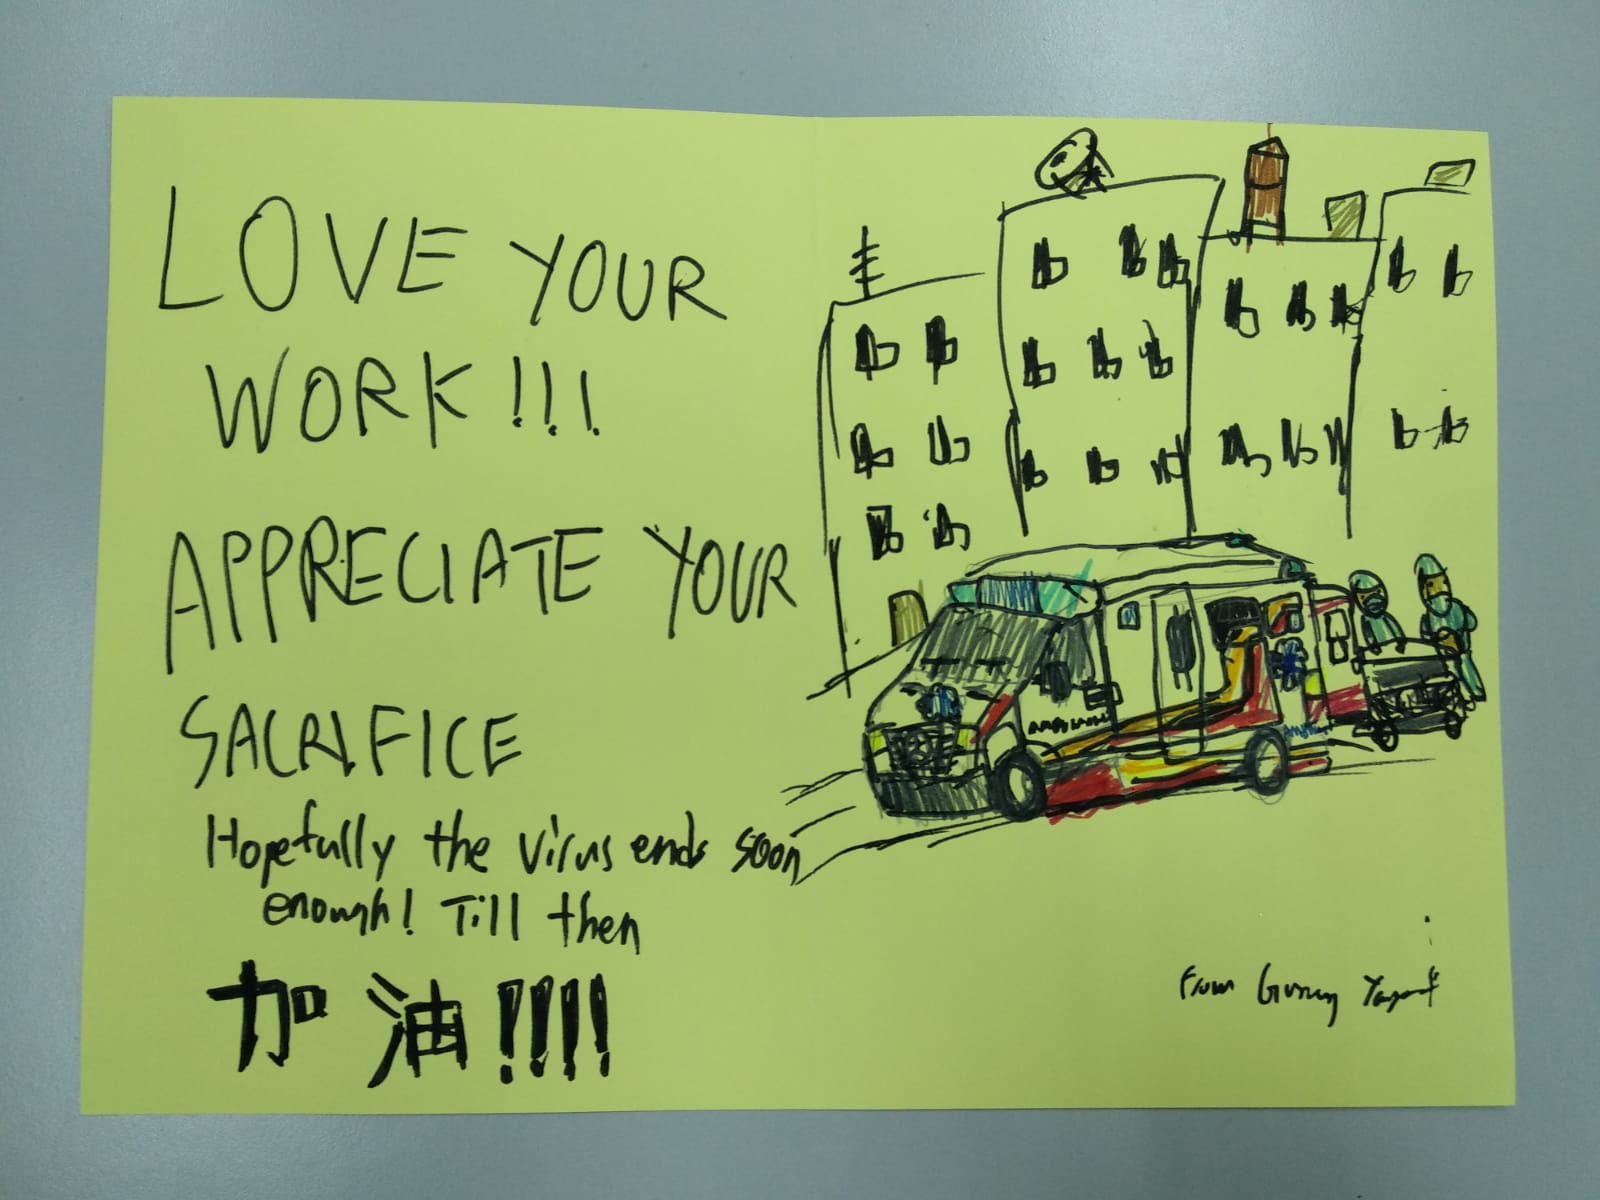 LOVE YOUR
WORK!!!
APPRECIATE YOUR
SACRIFICE
Hopefully the virus ends soon
enough! Till then
加油!!!!
From